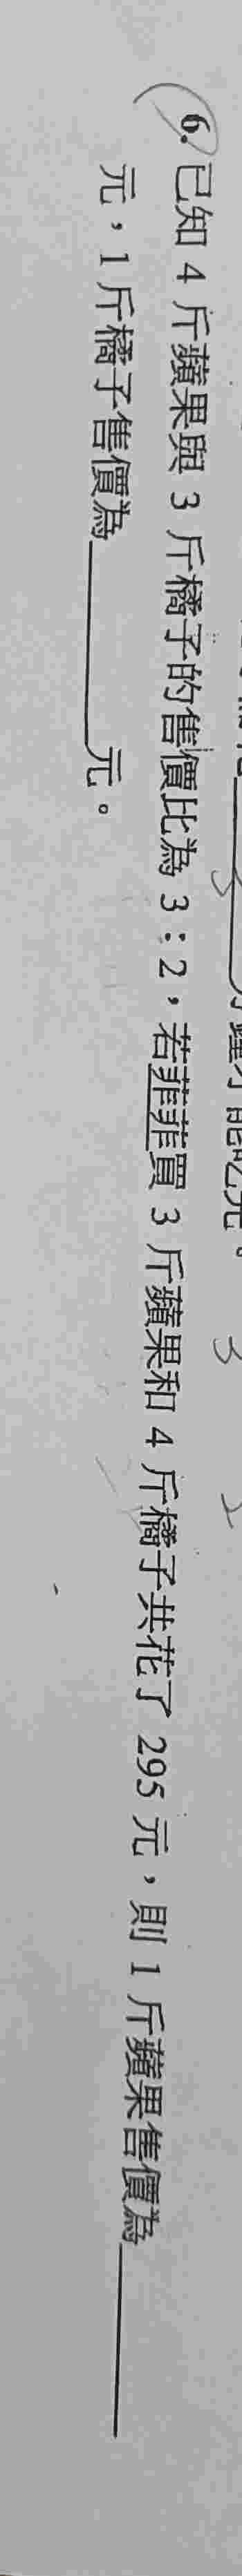 分鐘才能吃完。
3 2
6. 已知 4 斤蘋果與 3 斤橘子的售價比為 3：2，若菲菲買 3 斤蘋果和 4 斤橘子共花了 295 元，則 1 斤蘋果售價為______
元，1 斤橘子售價為______元。